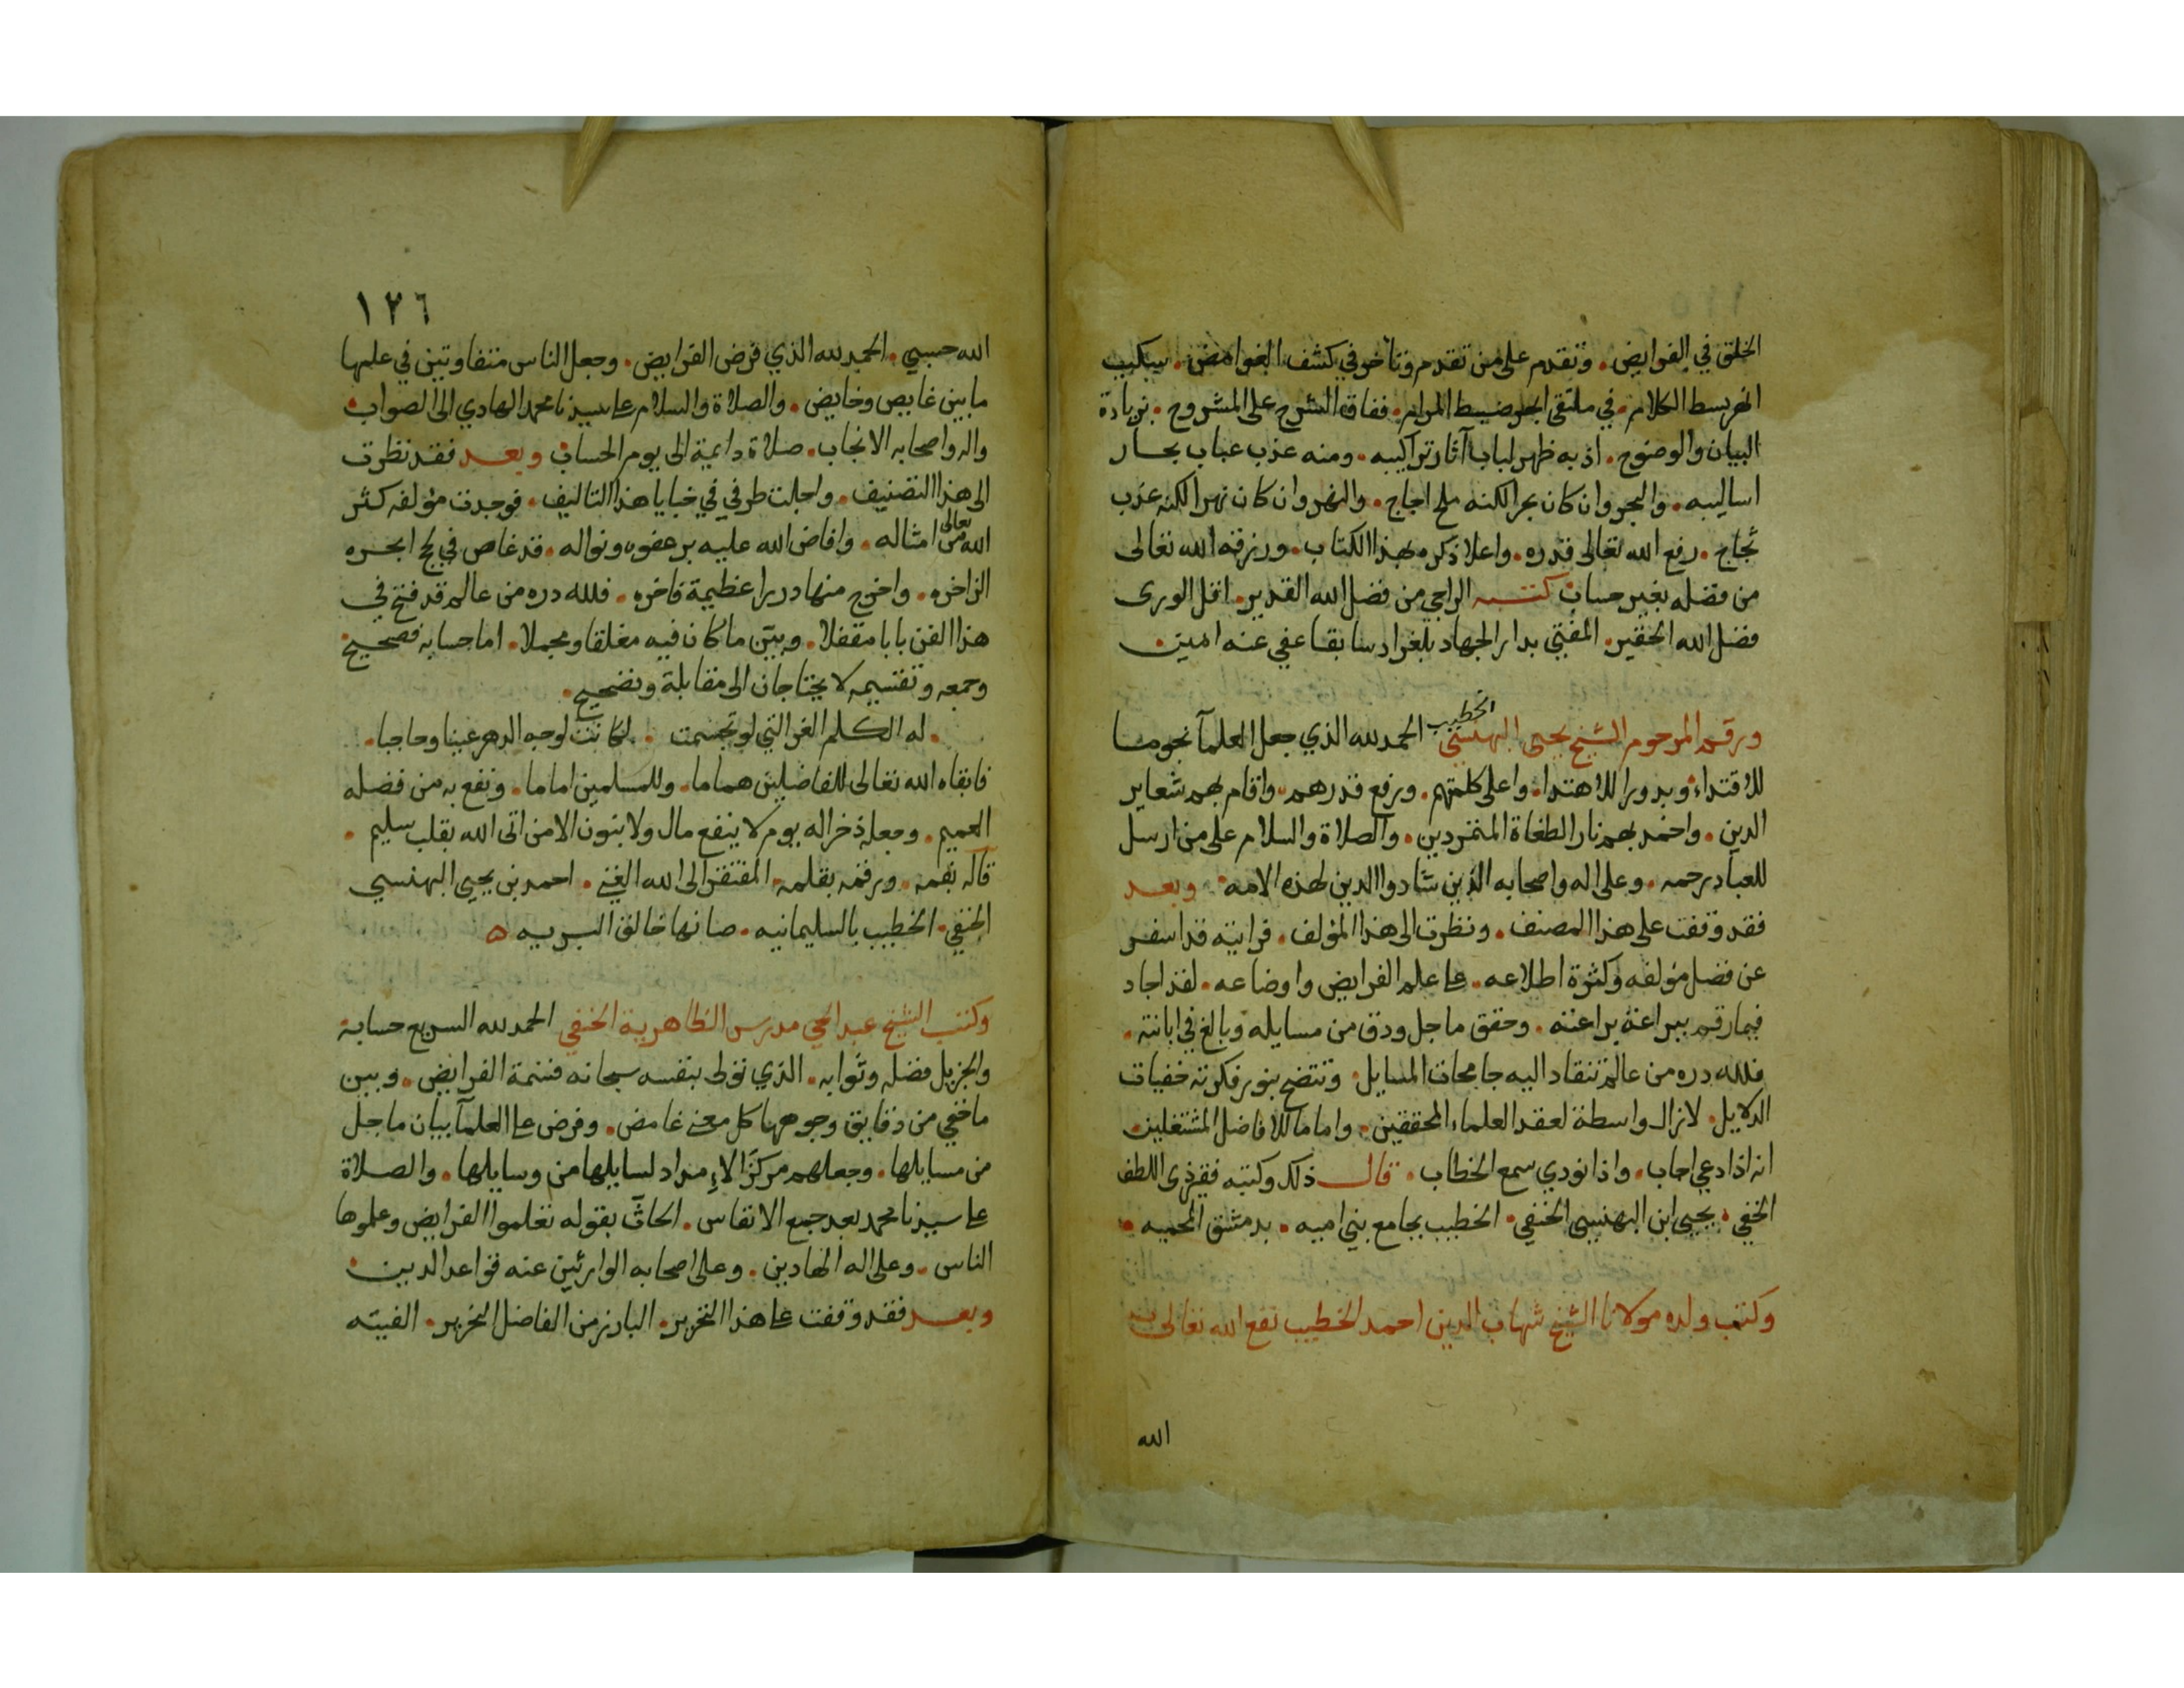 الخلق في الفرايض. وتقدم على من تقدم وتاخر في كشف الغوامض. سيكيب
النهر بسط الكلام. في ملتقى ابحر ضبط المرام. ففاق الشرح على المشروح. بزيادة
البيان والوضوح. اذ به ظهر لباب آثار تراكيبه. ومنه عذب عباب بحار
اساليبه. والبحر وان كان بحرا لكنه ملح اجاج. والنهر وان كان نهرا لكنه عذب
ثجاج. رفع الله تعالى قدره. واعلا ذكره بهذا الكتاب. ورزقه الله تعالى
من فضله بغير حساب كتبه الراجي من فضل الله القدير. اقل الورى
فضل الله الحقير. المفتي بدار الجهاد بلغراد سابقا عفي عنه امين.
ورقم المرحوم الشيخ يحيى البهنسي الخطيب الحمد لله الذي جعل العلمآ نجوما
للاقتداء وبدورا للاهتدا. واعلى كلمتهم. ورفع قدرهم. واقام بهم شعاير
الدين. واخمد بهم نار الطغاة المتمردين. والصلاة والسلام على من ارسل
للعباد رحمه. وعلى اله واصحابه الذين شادوا الدين لهذه الامه. وبعد
فقد وقفت على هذا المصنف. ونظرت الى هذا المؤلف. فرايته قد اسفر
عن فضل مؤلفه وكثرة اطلاعه. على علم الفرايض واوضاعه. لقد اجاد
فيما رقم ببراعة يراعته. وحقق ما جل ودق من مسايله وبالغ في ابانته.
فلله دره من عالم تنقاد اليه جامحات المسايل. وتتضح بنور فكرته خفيات
الدلايل. لازال واسطة لعقد العلماء المحققين. واماما للافاضل المشتغلين.
انه اذا دعي اجاب. واذا نودي سمع الخطاب. قال ذلك وكتبه فقير ذى اللطف
الخفي. يحيى ابن البهنسي الحنفي. الخطيب بجامع بني اميه. بدمشق المحميه.
وكتب ولده مولانا الشيخ شهاب الدين احمد الخطيب نفع الله تعالى به
الله
١٢٦
الله حسبي. الحمد لله الذي فرض الفرايض. وجعل الناس متفاوتين في علمها
ما بين غايص وخايض. والصلاة والسلام على سيدنا محمد الهادي الى الصواب
واله واصحابه الانجاب. صلاة دايمة الى يوم الحساب وبعد فقد نظرت
الى هذا التصنيف. واجلت طرفي في خبايا هذا التاليف. فوجدت مؤلفه كثر
الله تعالى من امثاله. وافاض الله عليه بر عفوه ونواله. قد غاص في لجج ابحره
الزاخره. واخرج منها دررا عظيمة فاخره. فلله دره من عالم قد فتح في
هذا الفن بابا مقفلا. وبيّن ما كان فيه مغلقا ومجملا. اما حسابه فصحيح
وجمعه وتقسيمه لا يحتاجان الى مقابلة وتصحيح.
. له الكلم الغر التي لو تجسمت . لكانت لوجه الدهر عينا وحاجبا.
فابقاه الله تعالى للفاضلين هماما. وللمسلمين اماما. ونفع به من فضله
العميم. وجعله ذخرا له يوم لا ينفع مال ولا بنون الا من اتى الله بقلب سليم.
قاله بفمه. ورقمه بقلمه. المفتقر الى الله الغني. احمد بن يحيى البهنسي
الحنفي. الخطيب بالسليمانيه. صانها خالق البريه ه
وكتب الشيخ عبد الحي مدرس الظاهرية الحنفي الحمد لله السريع حسابه
والجزيل فضله وثوابه. الذي تولى بنفسه سبحانه قسمة الفرايض. وبين
ما خفي من دقايق وجوهها كل معنى غامض. وفرض على العلمآ بيان ما جل
من مسايلها. وجعلهم مركزًا لامداد لسايلها من وسايلها. والصلاة
على سيدنا محمد بعد جميع الانفاس. الحاثّ بقوله تعلموا الفرايض وعلموها
الناس. وعلى اله الهادين. وعلى اصحابه الوارثين عنه قواعد الدين.
وبعد فقد وقفت على هذا التحرير. البارز من الفاضل النحرير. الفيته